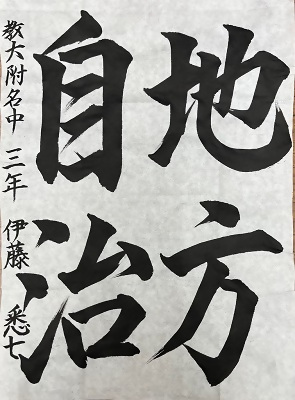 地方
自治
教大附名中 三年 伊藤 悉七